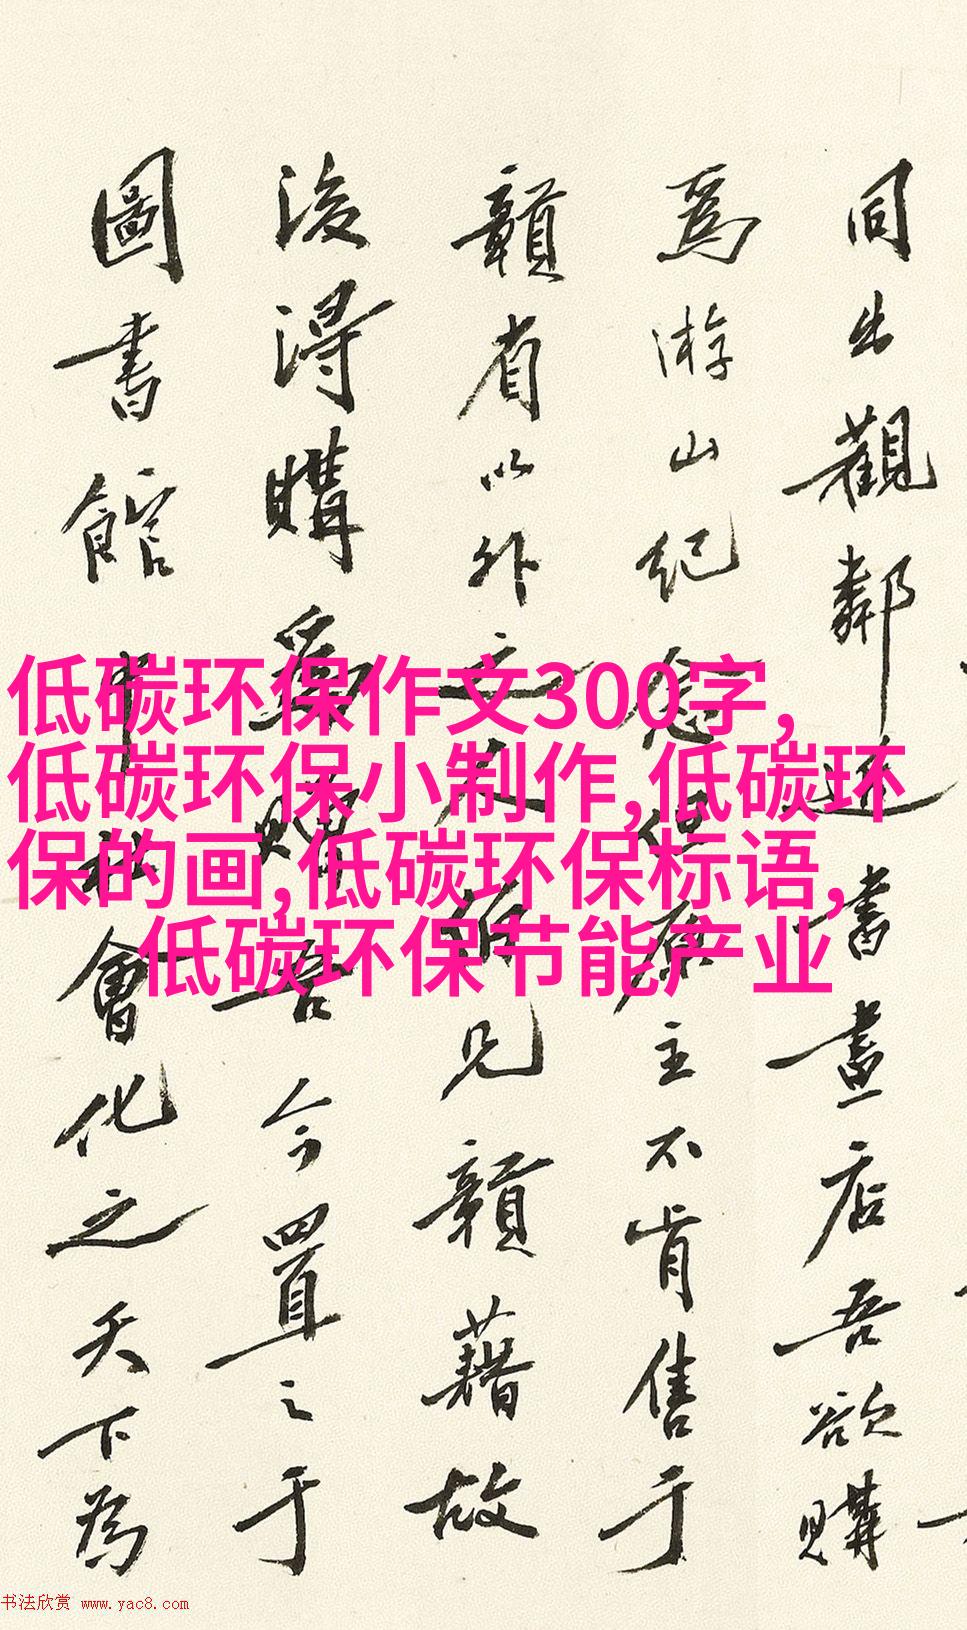 同出觀鄰近書畫店吾欲購
為游山紀念但原主不肯售于
贛省以外之人伯見贛藉故
後得購為贈吾今置之于
圖書館中社會化之天下為
低碳环保作文300字,
低碳环保小制作,低碳环
保的画,低碳环保标语,
低碳环保节能产业
书法欣赏 www.yac8.com